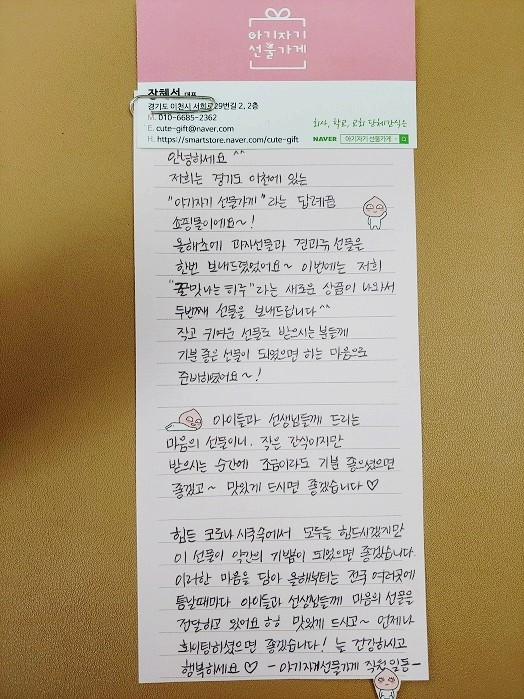 아기자기
선물가게
장혜선 대표
경기도 이천시 서희로29번길 2, 2층
M. 010-6685-2362
E. cute-gift@naver.com
H. https://smartstore.naver.com/cute-gift
회사, 학교, 교회 단체간식은
NAVER 아기자기 선물가게
안녕하세요 ^^
저희는 경기도 이천에 있는
"아기자기 선물가게" 라는 답례품
쇼핑몰이에요~!
올해초에 과자선물과 견과류 선물을
한번 보내드렸었어요~ 이번에는 저희
"꿀맛나는 하루" 라는 새로운 상품이 나와서
두번째 선물을 보내드립니다^^
작고 귀여운 선물로 받으시는 분들께
기분 좋은 선물이 되었으면 하는 마음으로
준비하였어요~!
아이들과 선생님들께 드리는
마음의 선물이니, 작은 간식이지만
받으시는 순간에 조금이라도 기분 좋으셨으면
좋겠고~ 맛있게 드시면 좋겠습니다♡
힘든 코로나 시국속에서 모두들 힘드시겠지만
이 선물이 약간의 기쁨이 되었으면 좋겠습니다
이러한 마음을 담아 올해부터는 전국 여러곳에
틈날때마다 아이들과 선생님들께 마음의 선물을
전달하고 있어요 ㅎㅎ 맛있게 드시고~ 언제나
화이팅하셨으면 좋겠습니다! 늘 건강하시고
행복하세요♡ - 아기자기선물가게 직원일동-